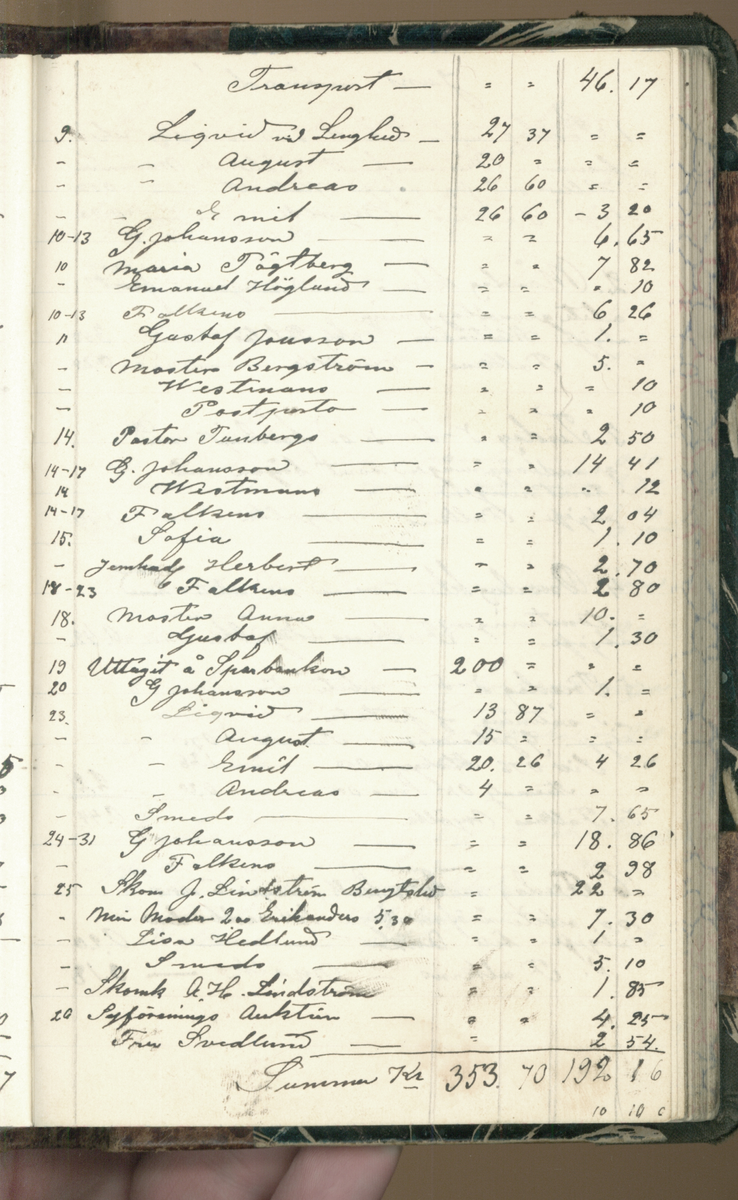 Transport — = = 46. 17
9. Liqvid vid Lenghed — 27 37 = =
- " August — 20 = = =
- " Andreas 26 60 = =
- " Emil — 26 60 - 3 20
10-13 G. Johansson — = = 6. 65
10 Maria Tägtberg — = = 7 82
- Emanuel Höglund — = = = 10
10-13 Falkens — = = 6 26
11 Gustaf Jonsson — = = 1. =
- Moster Bergström — = = 5. =
- Westmans — = = = 10
- Postporto — = = = 10
14. Pastor Tunbergs — = = 2 50
14-17 G. Johansson — = = 14 41
14 Westmans — = = = 12
14-17 Falkens — = = 2 04
15. Sofia — = = 1. 10
- Jernhad Herbert — = = 2. 70
18-23 Falkens — = = 2 80
18. Moster Anna — = = 10. =
- Gustaf = = 1. 30
19 Uttagit å Sparbanken — 200 = = =
20 G Johansson — = = 1. =
23. Liqvid — 13 87 = =
- " August — 15 = = =
- " Emil — 20. 26 4 26
- " Andreas — 4 = = =
Smeds — = = 7. 65
24-31 G Johansson — = = 18. 86
- Falkens — = = 2 98
25 Skom J. Lindström Bengtsbo = 22 =
" Min Moder 200 Erikanders 5,30 = = 7. 30
- Lisa Hedlund — = = 1 =
- Smeds — = = 5. 10
- Skomk A. H. Lindström = = 1. 85
Syförenings Auktion — = = 4. 25
Fru Svedlund — = 2 54.
Summa Kr 353. 70 192 16
10 10